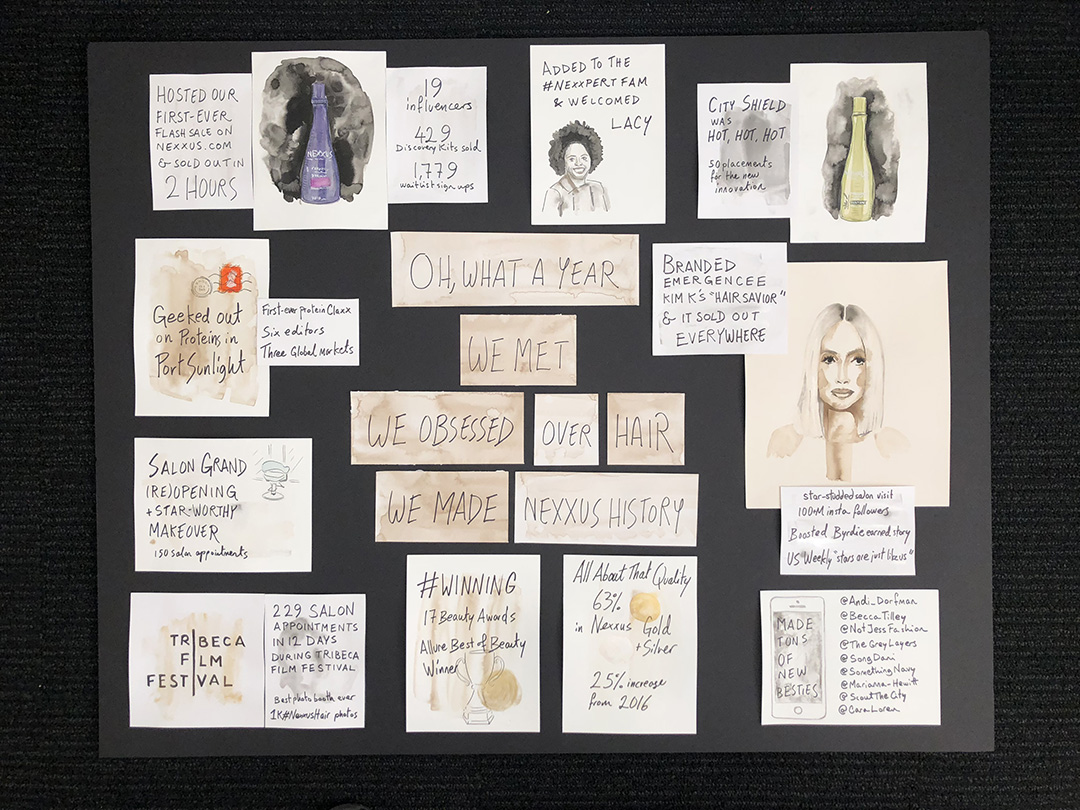 HOSTED OUR
FIRST-EVER
FLASH SALE ON
NEXXUS.COM
& SOLD OUT IN
2 HOURS
NEXXUS
19
influencers
429
Discovery Kits sold
1,779
waitlist sign ups
ADDED TO THE
#NEXXPERT FAM
& WELCOMED
LACY
CITY SHIELD
WAS
HOT, HOT, HOT
50 placements
for the new
innovation
Geeked out
on Proteins in
Port Sunlight
First-ever protein Claxx
Six editors
Three Global markets
OH, WHAT A YEAR
WE MET
WE OBSESSED OVER HAIR
WE MADE NEXXUS HISTORY
BRANDED
EMERGENCEE
KIM K'S "HAIR SAVIOR"
& IT SOLD OUT
EVERYWHERE
star-studded salon visit
100+M insta followers
Boosted Byrdie earned story
US Weekly "stars are just like us"
SALON GRAND
(RE)OPENING
+ STAR-WORTHY
MAKEOVER
150 salon appointments
TRIBECA
FILM
FESTIVAL
229 SALON
APPOINTMENTS
IN 12 DAYS
DURING TRIBECA
FILM FESTIVAL
Best photo booth ever
1K #NexxusHair photos
#WINNING
17 Beauty Awards
Allure Best of Beauty
Winner
All About That Quality
63%
in Nexxus Gold
+ Silver
25% increase
from 2016
MADE
TONS
OF
NEW
BESTIES
@Andi_Dorfman
@BeccaTilley
@NotJessFashion
@TheGreyLayers
@SongDani
@SomethingNavy
@Marianna-Hewitt
@ScoutTheCity
@CaraLoren